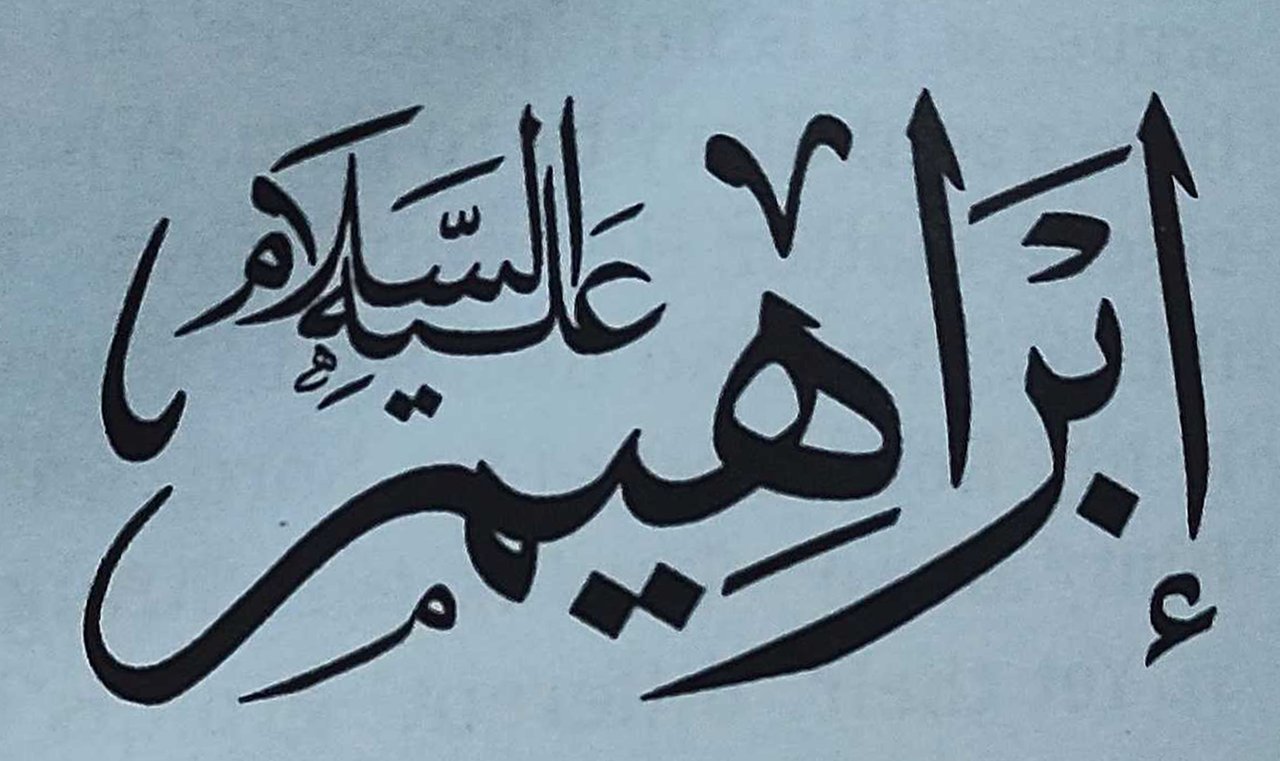 إِبْرَاهِيم
عَلَيْهِ السَّلَام